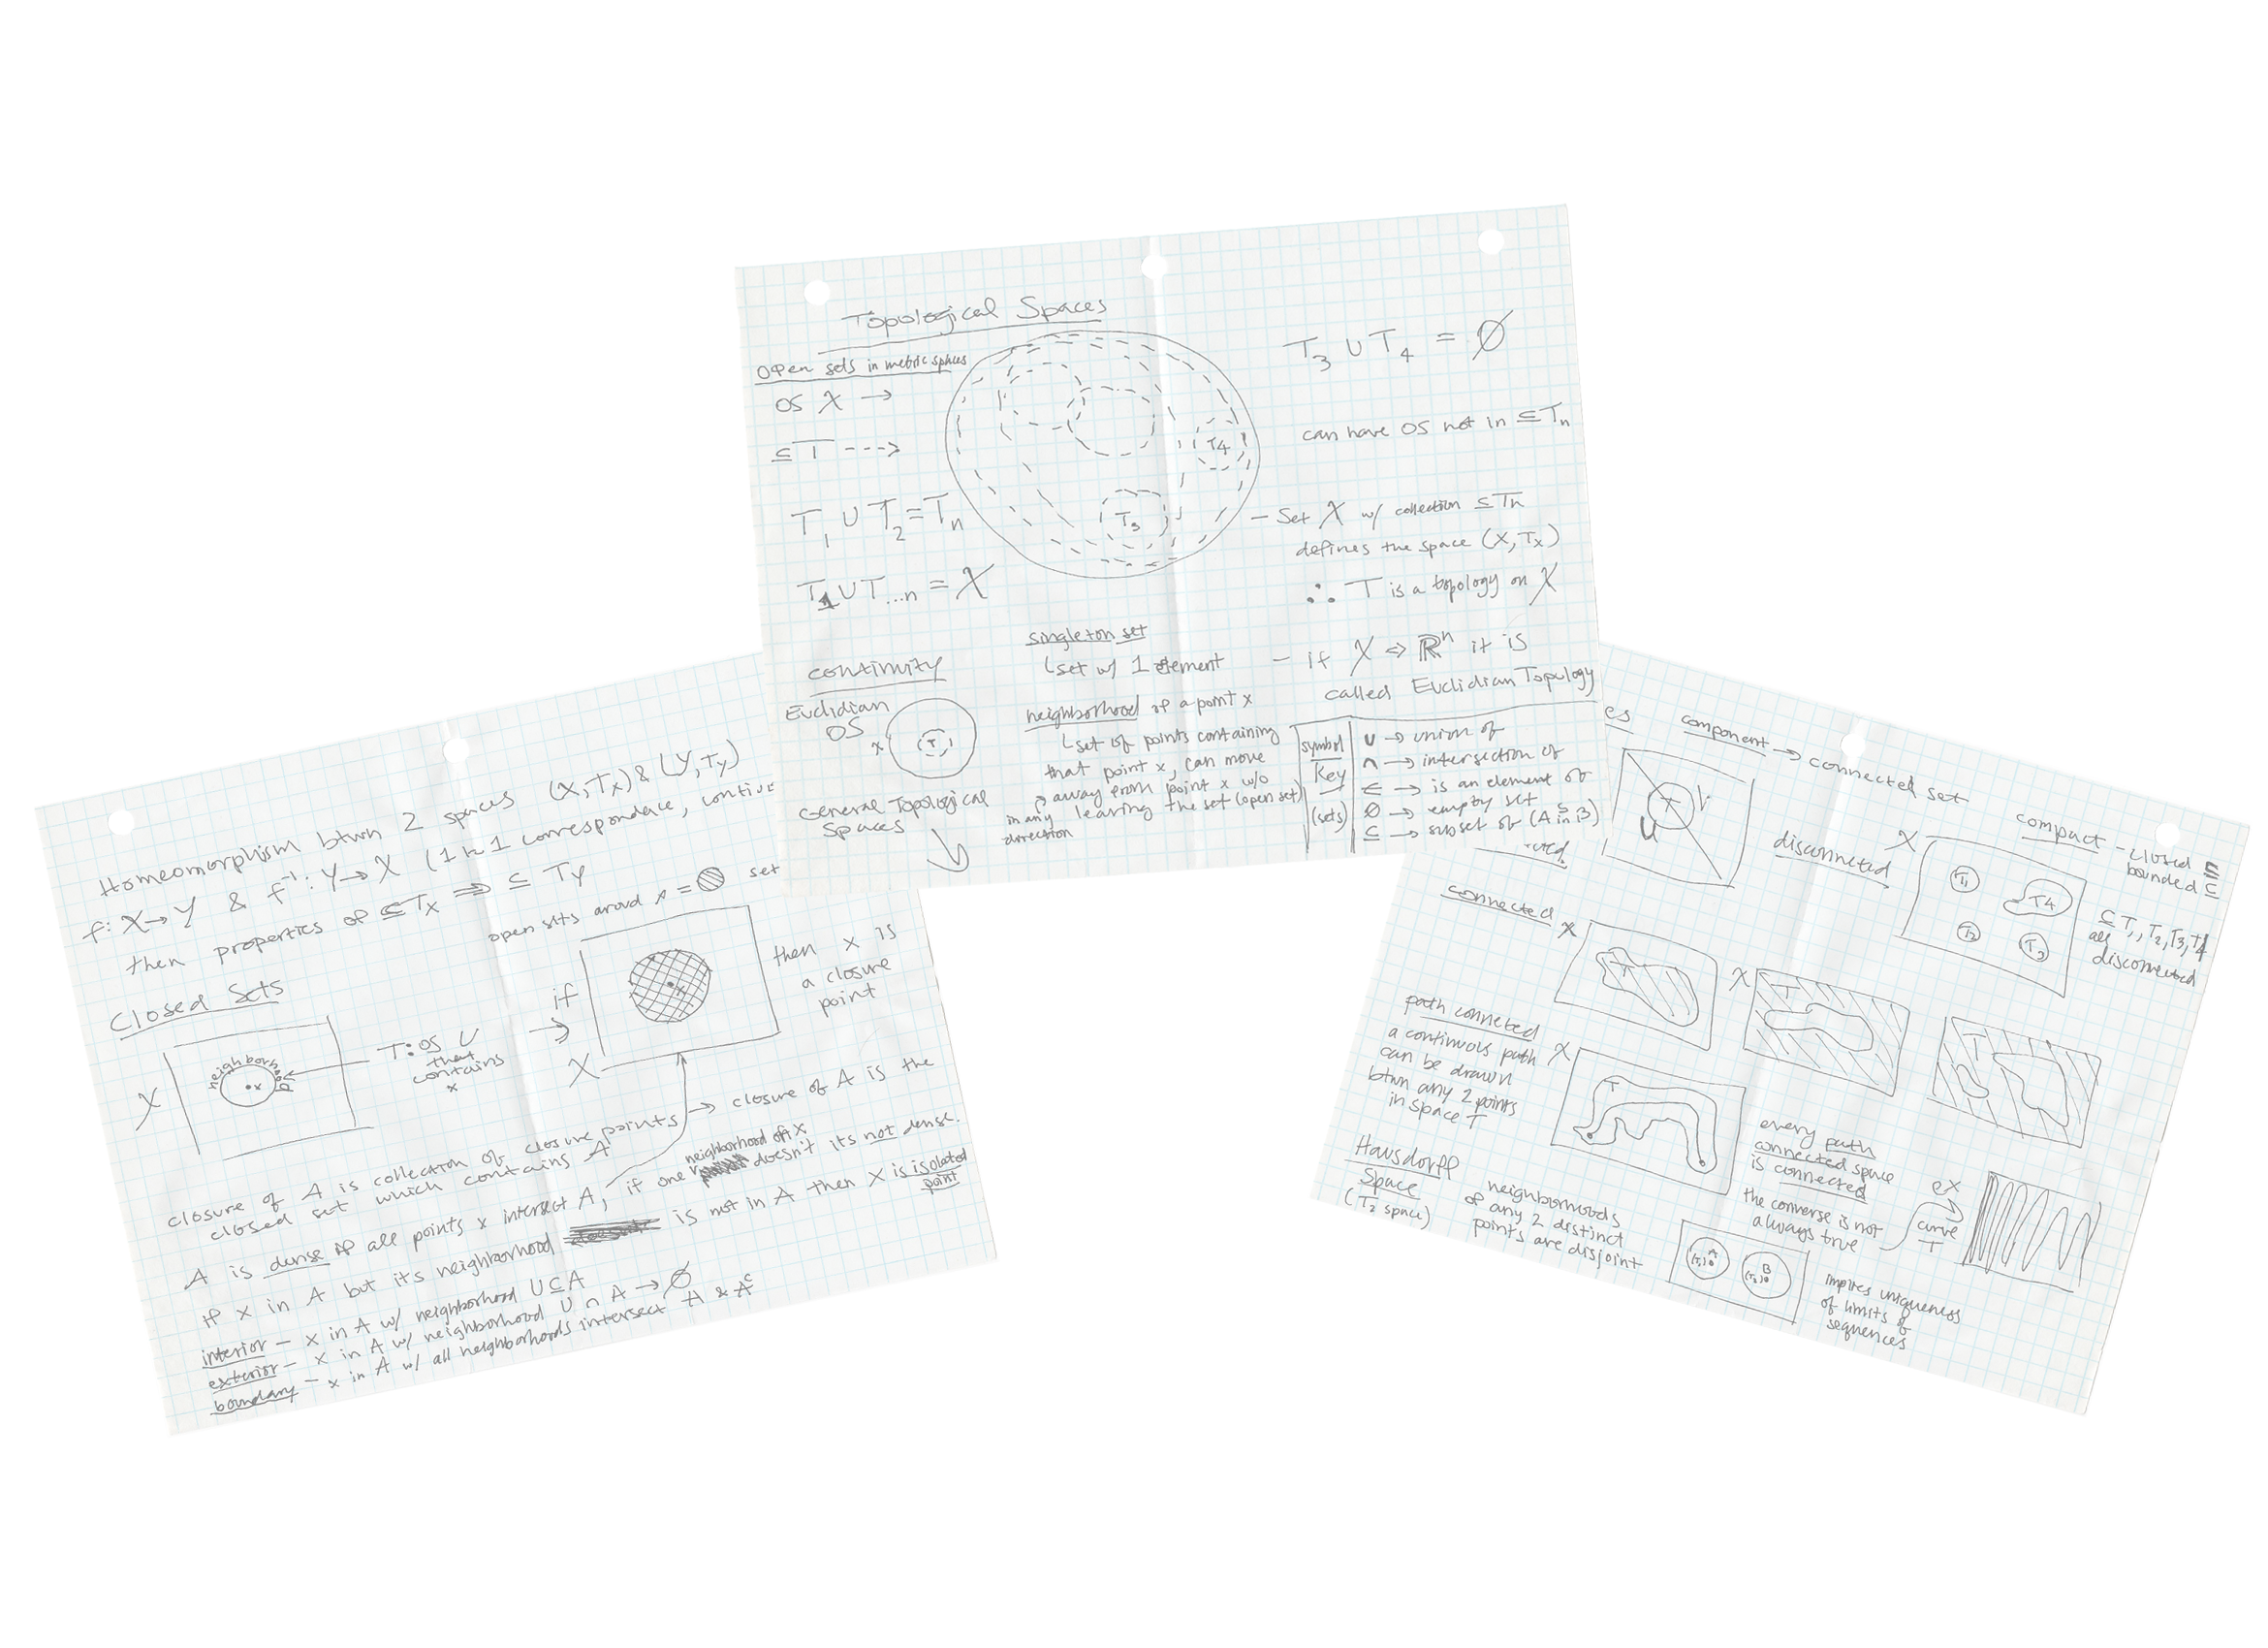 Topological Spaces
Open sets in metric spaces
OS X →
⊆ T --->
T₁ ∪ T₂ = Tₙ
T₁ ∪ T...ₙ = X
T₄
T₃
T₃ ∪ T₄ = ∅
can have OS not in ⊆ Tₙ
- Set X w/ collection ⊆ Tₙ
defines the space (X, Tx)
∴ T is a topology on X
- if X ⇔ ℝⁿ it is
called Euclidian Topology
continuity
Euclidian
OS
x
T
General Topological
Spaces
singleton set
set w/ 1 element
neighborhood of a point x
set of points containing
that point x, can move
away from point x w/o
in any direction
leaving the set (open set)
symbol
key
(sets)
∪ → union of
∩ → intersection of
∈ → is an element of
∅ → empty set
⊆ → subset of (A is in B)
Homeomorphism btwn 2 spaces (X, Tx) & (Y, Ty)
f: X → Y & f⁻¹: Y → X (1 to 1 correspondace,
then properties of ⊆ Tx ⇒ ⊆ Ty
Closed Sets
open sets around
= set
X
neighborhood
• x
T: OS U
that
contains
x
→
if
X
• x
then x is
a closure
point
closure of A is collection of closure points → closure of A is the
closed set which contains A
A is dense if all points x intersect A, if one neighborhood of x doesn't its not dense.
if x in A but its neighborhood is not in A then X is isolated
point
interior - x in A w/ neighborhood U ⊆ A
exterior - x in A w/ neighborhood U ∩ A → ∅
boundary - x in A w/ all neighborhoods intersect A & Aᶜ
es
component → connected set
U
V
T
disconnected
X
T₁
T₄
T₂
T₃
compact - closed ⊆
bounded ⊆
⊆ T₁, T₂, T₃, T₄
all
disconnected
connected
X
T
X
T
T
path conneted
a continuous path
can be drawn
btwn any 2 points
in space T
X
T
every path
connected space
is connected
the converse is not
always true
ex
curve
T
Hausdorff
Space
(T₂ space)
neighborhoods
of any 2 distinct
points are disjoint
(T₁) A
(T₂) B
implies uniqueness
of limits of
sequences